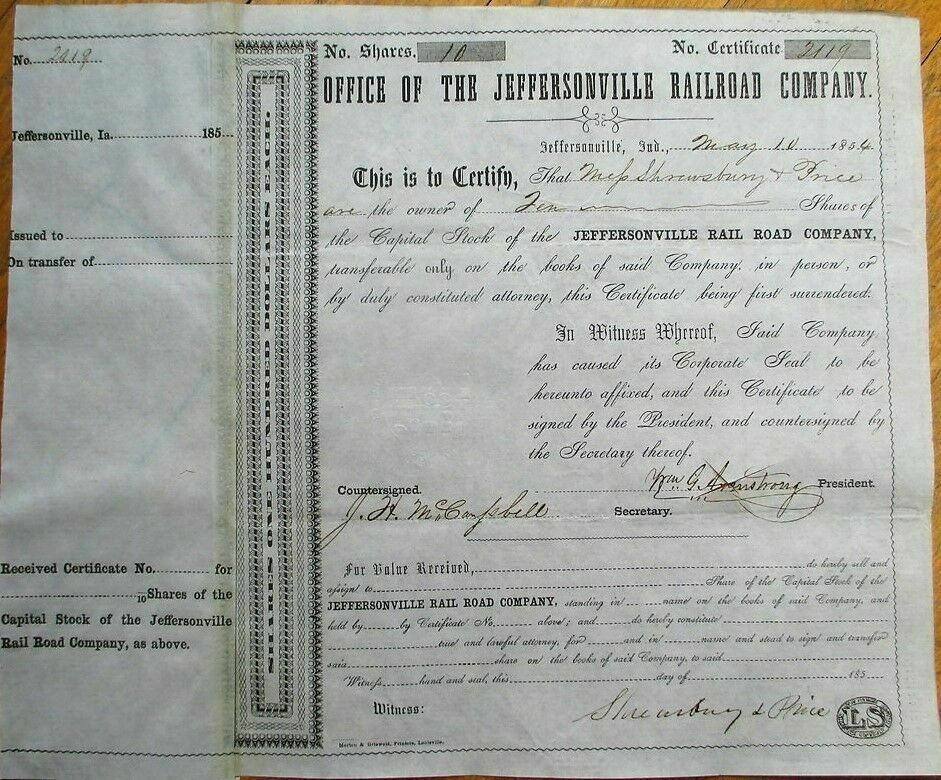 No. 2119
Jeffersonville, Ia. 185
Issued to
On transfer of
Received Certificate No. for
10 Shares of the
Capital Stock of the Jeffersonville
Rail Road Company, as above.
No. Shares. 10 No. Certificate 2119
OFFICE OF THE JEFFERSONVILLE RAILROAD COMPANY.
Jeffersonville, Ind., May 10 1854
This is to Certify, That Mess Shrewsbury & Price
are the owner of Ten Shares of
the Capital Stock of the JEFFERSONVILLE RAIL ROAD COMPANY,
transferable only on the books of said Company, in person, or
by duly constituted attorney, this Certificate being first surrendered.
In Witness Whereof, Said Company
has caused its Corporate Seal to be
hereunto affixed, and this Certificate to be
signed by the President, and countersigned by
the Secretary thereof.
Wm. G. Armstrong President.
Countersigned.
J. H. McCampbell Secretary.
For Value Received, do hereby sell and
assign to Share of the Capital Stock of the
JEFFERSONVILLE RAIL ROAD COMPANY, standing in name on the books of said Company, and
held by by Certificate No. above; and do hereby constitute
true and lawful attorney, for and in name and stead to sign and transfer
said share on the books of said Company, to said
Witness hand and seal, this day of 185
Witness: Shrewsbury & Price
LS
Morton & Griswold, Printers, Louisville.